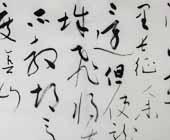 里長征人未
還但使龍
城飛將
不教胡
度陰山